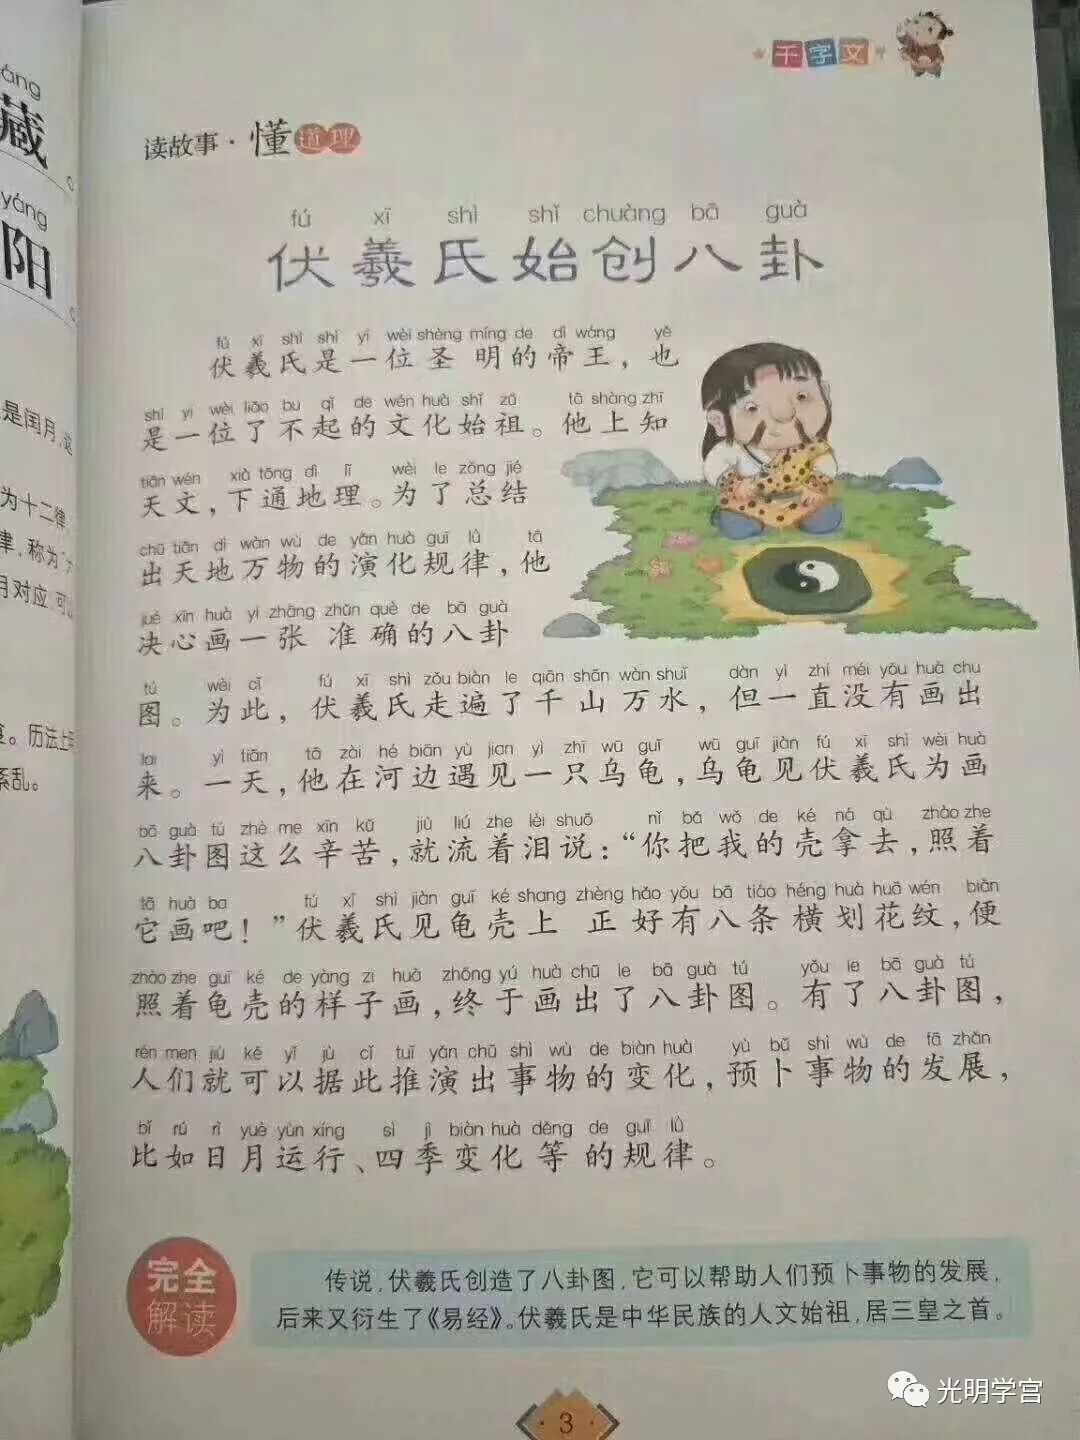 千字文
读故事·懂道理
fú xī shì shǐ chuàng bā guà
伏羲氏始创八卦
fú xī shì shì yí wèi shèng míng de dì wáng yě
伏羲氏是一位圣明的帝王，也
shì yí wèi liǎo bu qǐ de wén huà shǐ zǔ tā shàng zhī
是一位了不起的文化始祖。他上知
tiān wén xià tōng dì lǐ wèi le zǒng jié
天文，下通地理。为了总结
chū tiān dì wàn wù de yǎn huà guī lǜ tā
出天地万物的演化规律，他
jué xīn huà yì zhāng zhǔn què de bā guà
决心画一张准确的八卦
tú wèi cǐ fú xī shì zǒu biàn le qiān shān wàn shuǐ dàn yì zhí méi yǒu huà chu
图。为此，伏羲氏走遍了千山万水，但一直没有画出
lai yì tiān tā zài hé biān yù jian yì zhī wū guī wū guī jiàn fú xī shì wèi huà
来。一天，他在河边遇见一只乌龟，乌龟见伏羲氏为画
bā guà tú zhè me xīn kǔ jiù liú zhe lèi shuō nǐ bǎ wǒ de ké ná qù zhào zhe
八卦图这么辛苦，就流着泪说：“你把我的壳拿去，照着
tā huà ba fú xī shì jiàn guī ké shang zhèng hǎo yǒu bā tiáo héng huà huā wén biàn
它画吧！”伏羲氏见龟壳上正好有八条横划花纹，便
zhào zhe guī ké de yàng zi huà zhōng yú huà chū le bā guà tú yǒu le bā guà tú
照着龟壳的样子画，终于画出了八卦图。有了八卦图，
rén men jiù kě yǐ jù cǐ tuī yǎn chū shì wù de biàn huà yù bǔ shì wù de fā zhǎn
人们就可以据此推演出事物的变化，预卜事物的发展，
bǐ rú rì yuè yùn xíng sì jì biàn huà děng de guī lǜ
比如日月运行、四季变化等的规律。
完全
解读
传说，伏羲氏创造了八卦图，它可以帮助人们预卜事物的发展，
后来又衍生了《易经》。伏羲氏是中华民族的人文始祖，居三皇之首。
3
光明学宫
áng
藏
yáng
阳
是闰月，这
为十二律
律，称为
月对应，可
。历法上
紊乱。